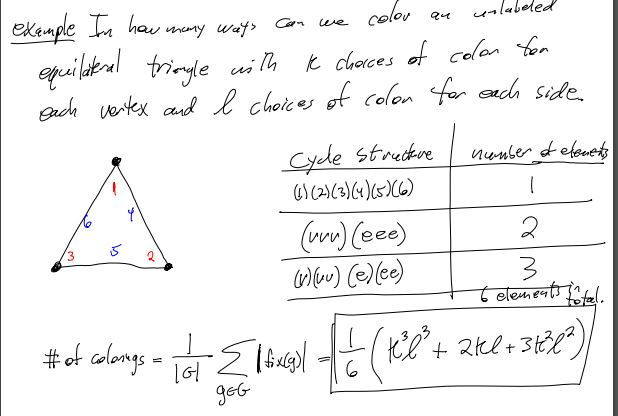 example In how many ways can we color an unlabeled
equilateral triangle with k choices of color for
each vertex and l choices of color for each side.
1
6
4
3
5
2
Cycle Structure | number of elements
(1)(2)(3)(4)(5)(6) | 1
(vvv)(eee) | 2
(v)(vv)(e)(ee) | 3
6 elements in total.
# of colorings = 1/|G| ∑ g∈G |fix(g)| = 1/6 (k³l³ + 2kl + 3k²l²)